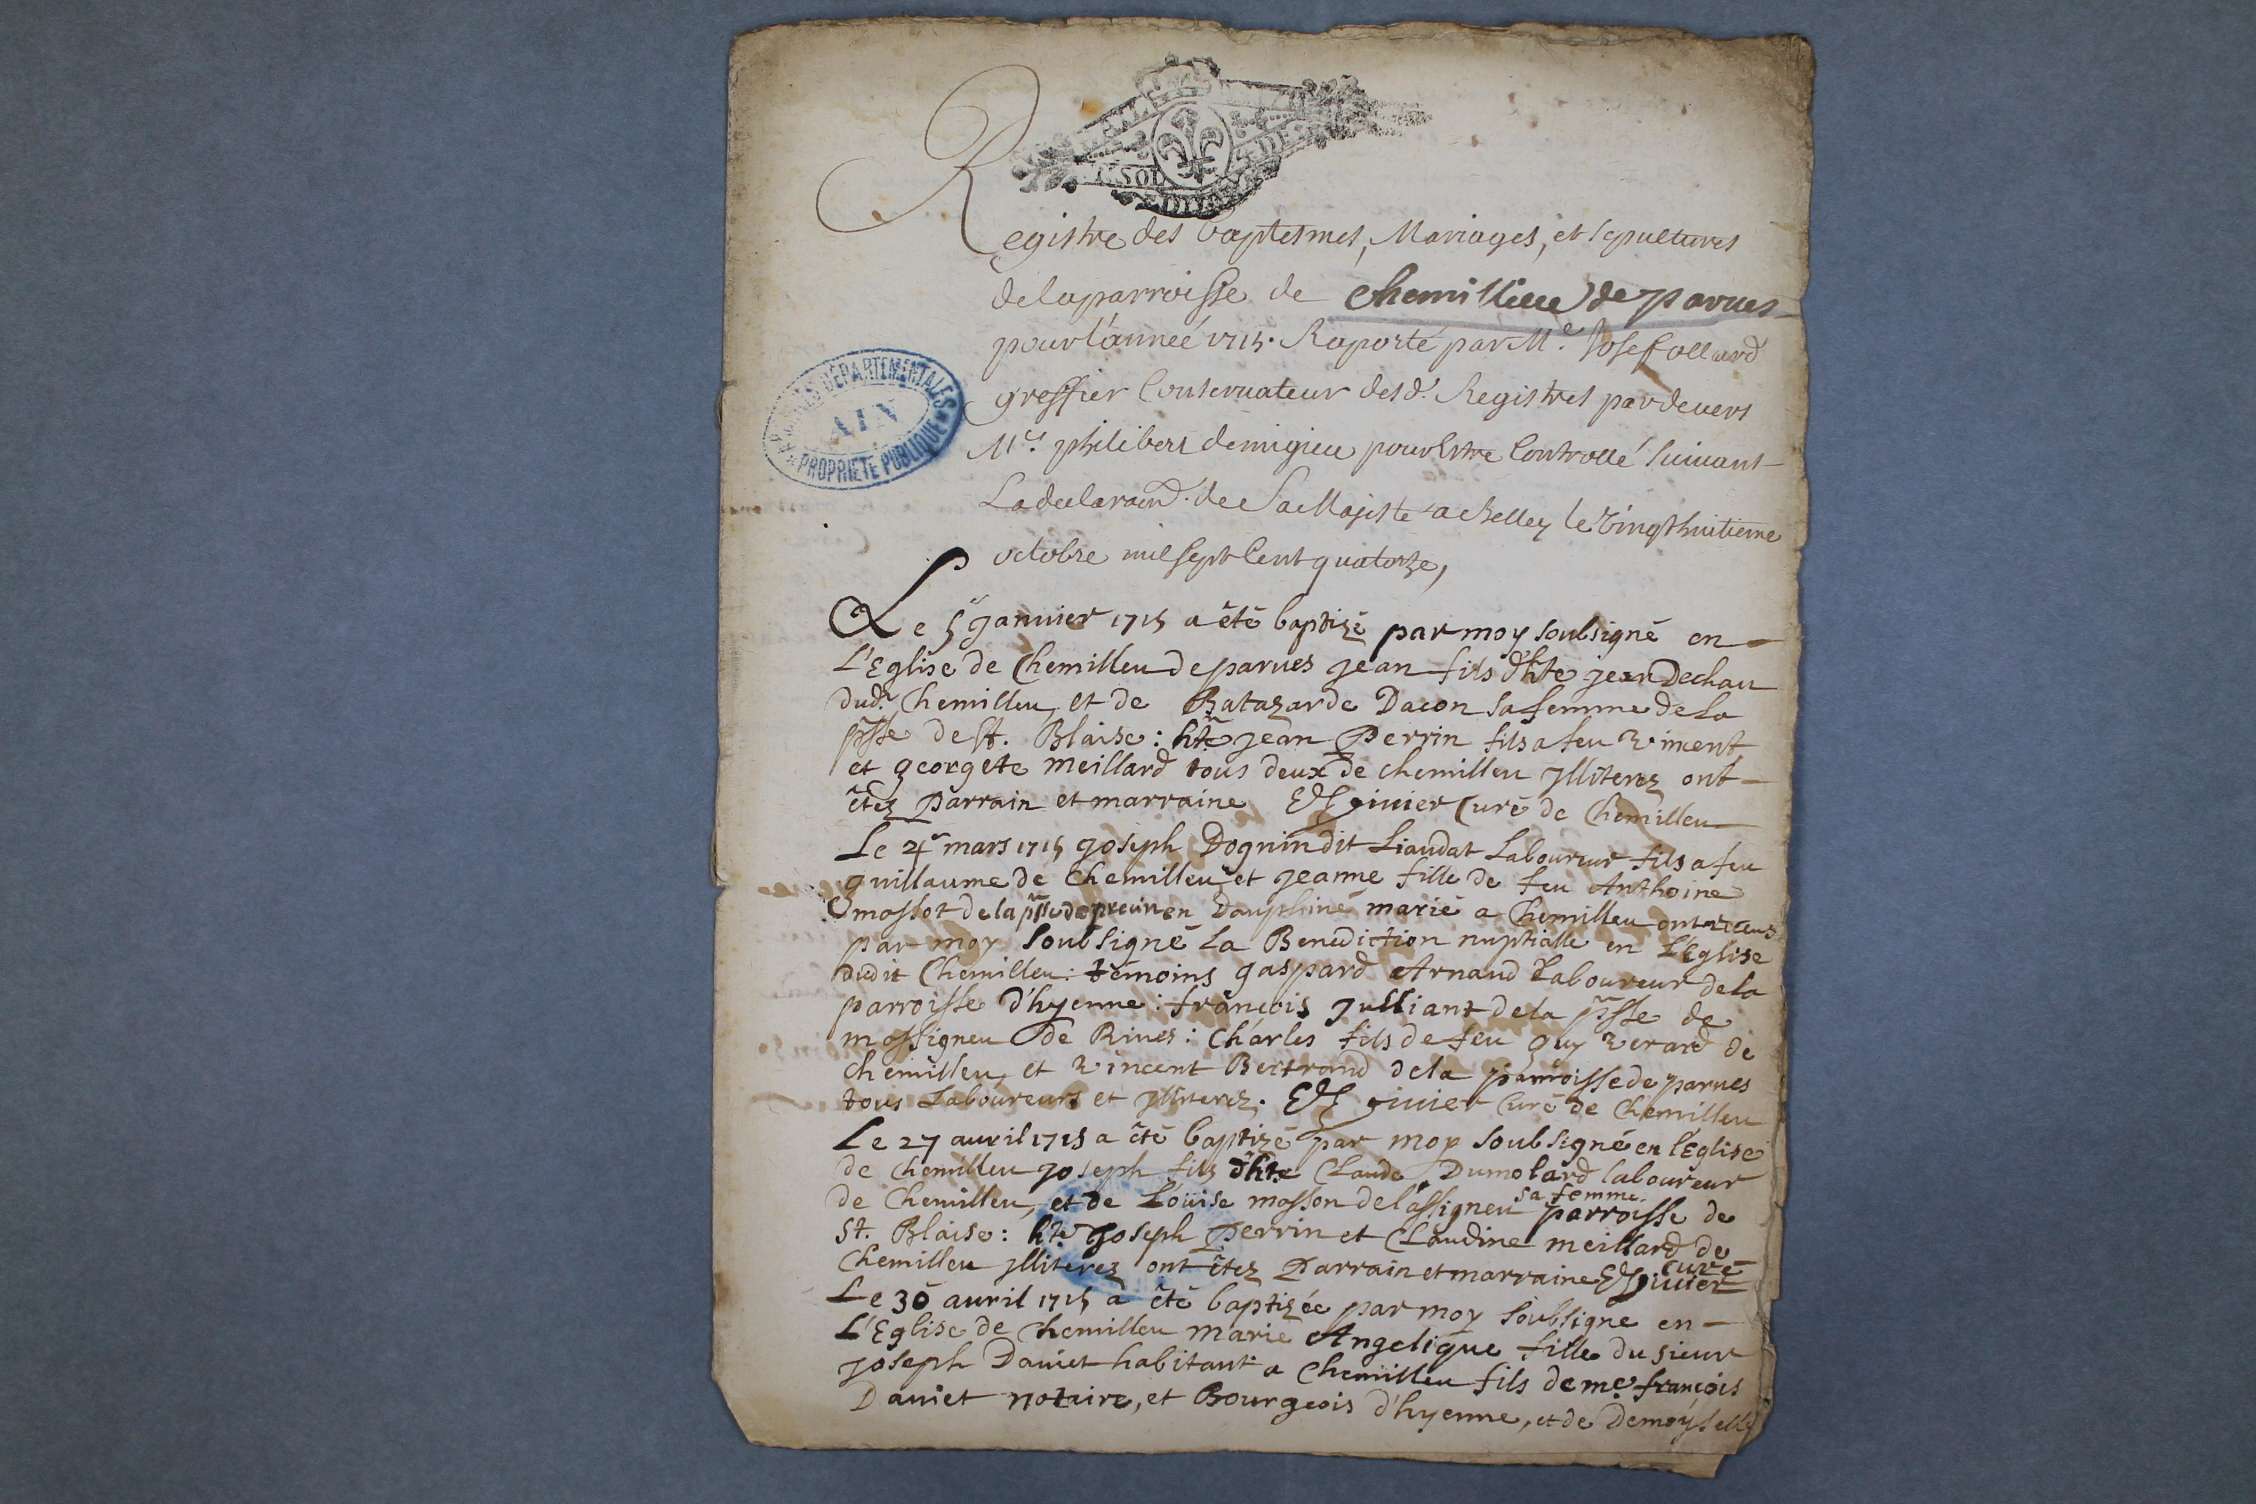 SOL
ARCHIVES DÉPARTEMENTALES
AIN
PROPRIÉTÉ PUBLIQUE
Registre des baptesmes, Mariages, et sepultures
de la parroisse de chemillieu de parues
pour l'année 1715. Raporté par Me. Josef ollard
greffier Conservateur desd. Registres pardevers
Mre. philibert demigieu pour Estre Controllé suivant
La declaraōn. de Sa Majesté a Belley le vingthuitieme
octobre mil sept Cent quatorze,
Le 5 Janvier 1715 a êté baptizé par moy soubsigné en
L'Eglise de Chemilleu de parues jean fils d'hte jean Dechau
dud. Chemilleu, et de Batazarde Dacon sa femme de La
psse de St. Blaise: hte jean Perrin fils a feu vincent
et georgete meillard tous deux de chemilleu jlliterez ont
êtez Parrain et marraine givier Curé de Chemilleu
Le 4 mars 1715 Joseph Dognin dit Liaudat Laboureur fils a feu
guillaume de Chemilleu et jeanne fille de feu Anthoine
mossot de la psse de en Dauphiné marié a Chemilleu ont receus
par moy soubsigné La Benediction nuptialle en L'Eglise
dudit Chemilleu: témoins gaspard Arnaud Laboureur de la
parroisse d'hyenne: françois Julliant de la psse de
massigneu de Rives: Charles fils de feu guy verard de
chemilleu, et vincent Bertrand de la parroisse de parues
tous Laboureurs et jlliterez. givier Curé de Chemilleu
Le 27 avril 1715 a êté baptizé par moy soubsigné en l'Eglise
de chemilleu Joseph fils d'hte Claude Dumolard laboureur
de Chemilleu, et de Loüise mosson de lassigneu sa femme parroisse de
St. Blaise: hte Joseph Perrin et Claudine meillard de
Chemilleu jlliterez ont êtez Parrain et marraine givier Curé
Le 30 avril 1715 a êté baptizée par moy soubsigné en
L'Eglise de Chemilleu marie Angelique fille du sieur
Joseph Daviet habitant a Chemilleu fils de me. françois
Daviet notaire, et Bourgeois d'hyenne, et de Demoyselle